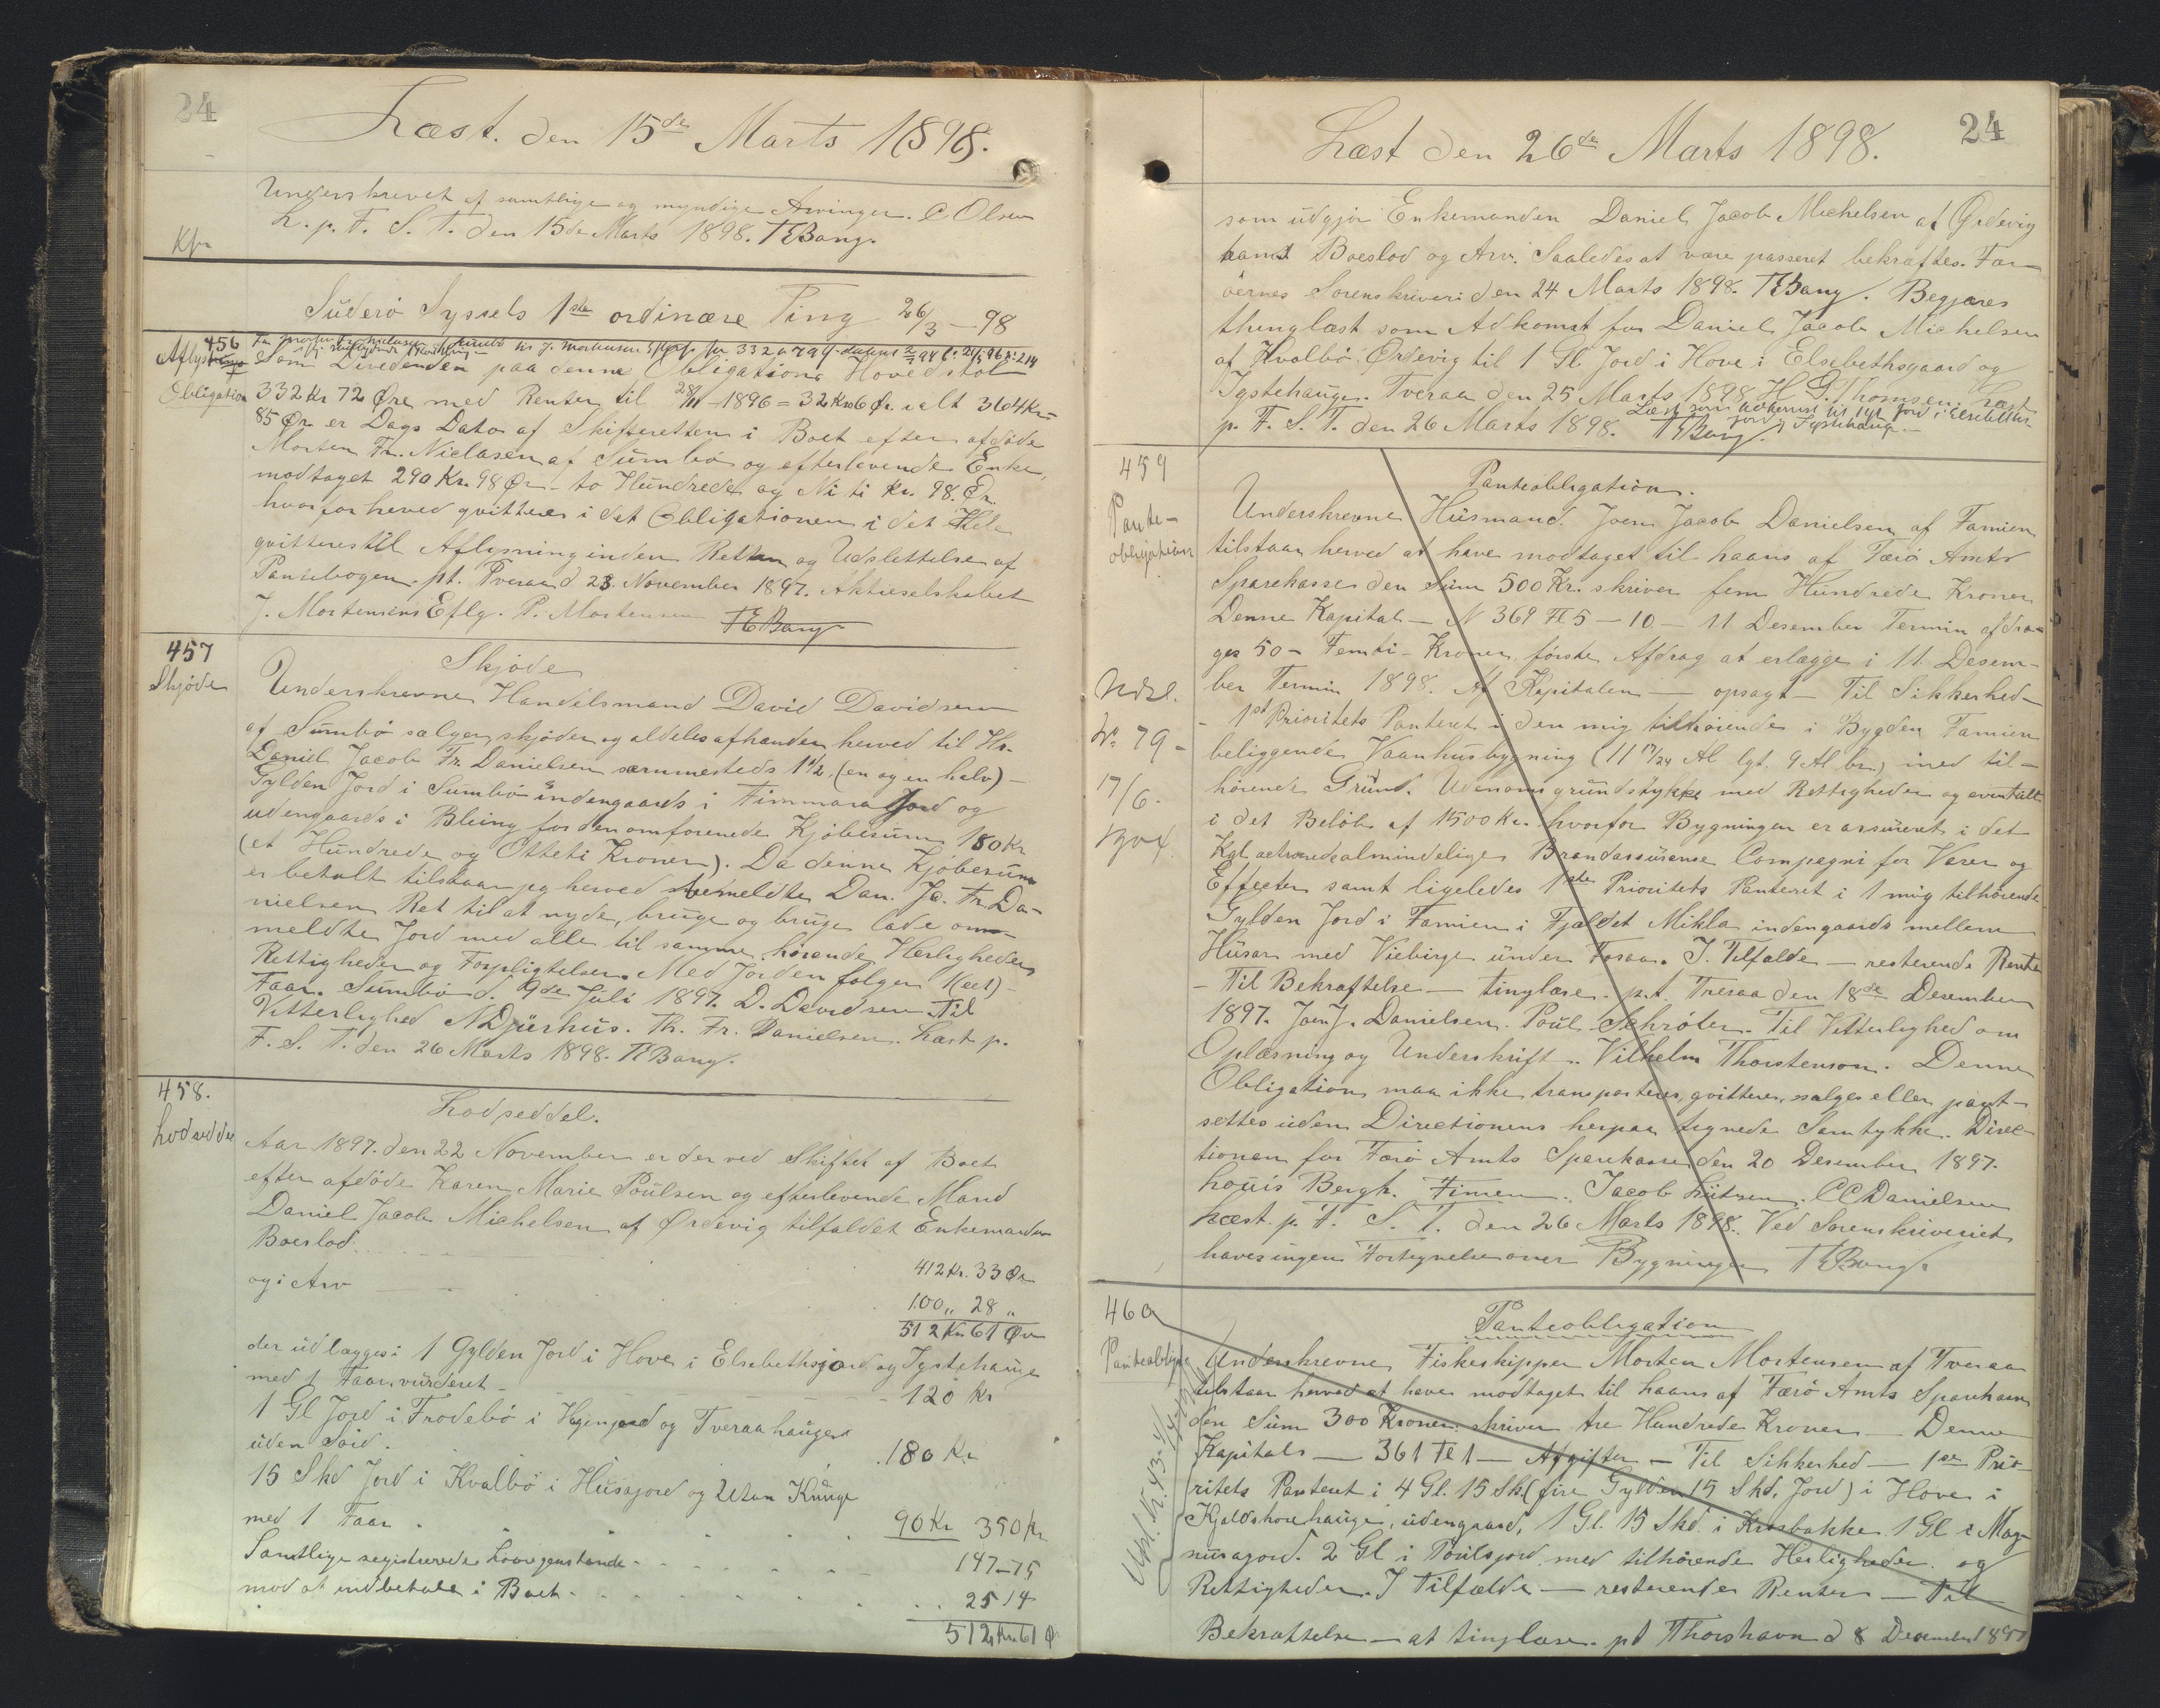 24
Læst. den 15de Marts 1898.
Underskrevet af samtlige og myndige Arvinger. C Olsen
L. p. F. S. T. den 15de Marts 1898. TEBang.
Suderö Syssels 1ste ordinære Ting 26/3 - 98
456
Aflysning
Obligation
Som Dividenden paa denne Obligations Hovedstol
332 Kr 72 Øre med Renter til 28/11 - 1896 = 32 Kr 6 Ør. ialt 364 Kr
85 Ør. er Dags Dato af Skifteretten i Boet efter afdöde
Morten Fr. Niclasen af Sumbö og efterlevende Enke,
modtaget 290 Kr. 98 Ør - to Hundrede og Niti Kr. 98. Ør.
hvorfor herved qvitteres i det Obligationen i det Hele
qvitteres til Aflysning inden Retten og Udslettelse af
Pantebogen. pt. Tveraa d 23. November 1897. Aktieselskabet
J. Mortensens Eftlg. P. Mortensen TEBang
457
Skjöde
Skjöde
Underskrevne Handelsmand David Davidsen
af Sumbö sælger, skjöder og aldeles afhænder herved til Hr.
Daniel Jacob Fr. Danielsen sammesteds 1 1/2 (en og en halv) -
Gylden Jord i Sumbö indengaards i Timmara Jord og
udengaards i Bleing for den omforenede Kjöbesum 180 Kr
(et Hundrede og Otteti Kroner). Da denne Kjöbesum
er betalt tilstaar jeg herved bemeldte Dan. Ja. Fr. Da-
nielsen Ret til at nyde, bruge og bruge lade om-
meldte Jord med alle til samme hörende Herligheder
Rettigheder og Forpligtelser. Med Jorden fölger 1 (eet) -
Faar. Sumbö d. 9de Juli 1897. D. Davidsen. Til
Vitterlighed N Djurhus. Th. Fr. Danielsen. Læst p.
F. S. T. den 26 Marts 1898. TEBang.
458.
Lodseddel
Lodseddel.
Aar 1897. den 22 November er der ved Skiftet af Boet
efter afdöde Karen Marie Poulsen og efterlevende Mand
Daniel Jacob Michelsen af Ørdevig tilfaldet Enkemanden
Boeslod 412 Kr. 33 Ør
og i Arv 100 " 28 "
512 Kr 61 Ør
der udlægges i 1 Gylden Jord i Hove i Elsebethsjord og Tystehauge
med 1 Faar, vurderet - 120 Kr
1 Gl Jord i Frodebö i Hagenjord og Tveraa hauger
uden Söid. 180 Kr
15 Skd Jord i Kvalbö i Husajord og Utan Kunge
med 1 Faar 90 Kr 390 Kr
Samtlige registrerede Lösöregenstande 147-75
mod at indbetale i Boet 25 14
512 Kr. 61 Ø
24
Læst den 26de Marts 1898.
som udgjör Enkemanden Daniel Jacob Michelsen af Ørdevig
hans Boeslod og Arv. Saaledes at være passeret bekræftes. Fær-
öernes Sorenskriveri den 24 Marts 1898. TEBang. Begjæres
thinglæst som Adkomst for Daniel Jacob Michelsen
af Hvalbö Ørdevig til 1 Gl. Jord i Hove i Elsebethsgaard og
Tystehauge. Tveraa den 25 Marts 1898 H G. Thomsen. Læst
p. F. S. T. den 26 Marts 1898. TEBang.
459
Pante-
obligation
Pantobligation.
Underskrevne Husmand Joen Jacob Danielsen af Famien
tilstaar herved at have modtaget til Laans af Færö Amts
Sparekasse den Sum 500 Kr. skriver fem Hundrede Kroner
Denne Kapital - N 369 Fl 5 - 10 - 11 Desember Termin afdra-
ges 50 - Femti - Kroner, förste Afdrag at erlægge i 11. Desem-
ber Termin 1898. Af Kapitalen - opsagt - Til Sikkerhed -
- 1st Prioritets Panteret i den mig tilhörende i Bygden Famien
beliggende Vaanhusbygning (11 17/24 Al lgt. 9 Al br.) med til-
hörende Grund. Udenoms grundstykke med Rettigheder og eventuelt
i det Belöb af 1500 Kr. hvorfor Bygningen er assureret i det
Kgl. octroierede almindelige Brandassurance Compagni for Varer og
Effecter samt ligeledes 1ste Prioritets Panteret i 1 mig tilhörende
Gylden Jord i Famien i Fjældet Mikla indengaards mellem
Husar med Viebirge under Fosaa. I Tilfælde - resterende Rente
- Til Bekræftelse - tinglæse. p.t. Tveraa den 18de Desember
1897. Joen J. Danielsen. Poul Schröter. Til Vitterlighed om
Oplæsning og Underskrift.. Vilhelm Thorstenson. Denne
Obligation maa ikke transporteres, qvitteres, sælges eller pant-
settes uden Directionens herpaa tegnede Samtykke. Direc-
tionen for Færö Amts Sparekasse den 20 Desember 1897.
Louis Bergh. Finsen. Jacob Lützen. CC Danielsen
Læst. p. F. S. T. den 26 Marts 1898. Ved Sorenskriveriet
haves ingen Fortegnelse over Bygningen TEBang.
Udsl.
No 79 -
17/6.
1904
460
Panteobligation
Underskrevne, Fiskeskipper Morten Mortensen af Tveraa
tilstaar herved at have modtaget til Laans af Færö Amts Sparekasse
den Sum 300 Kroner skriver tre Hundrede Kroner - Denne
Kapitals - 361 Fl 1 - Afgifter - Til Sikkerhed - 1ste Prio-
ritets Panteret i 4 Gl. 15 Sk (fire Gylden 15 Skd. Jord) i Hove i
Kjaldshorehauge, udengaard, 1 Gl. 15 Skd. i Krosbakke. 1 Gl i Mag-
nusajord. 2 Gl i Poulsjord med tilhörende Herligheder og
Rettigheder. I Tilfælde - resterende Renter - Til
Bekræftelse - at tinglæse. pt Thorshavn d 8 December 1897